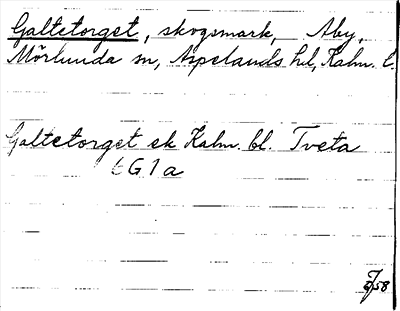 Galtetorget, skogsmark, Åby,
Mörlunda sn, Aspelands hd, Kalm. l.
Galtetorget ek Kalm. bl. Tveta
6G1a
58